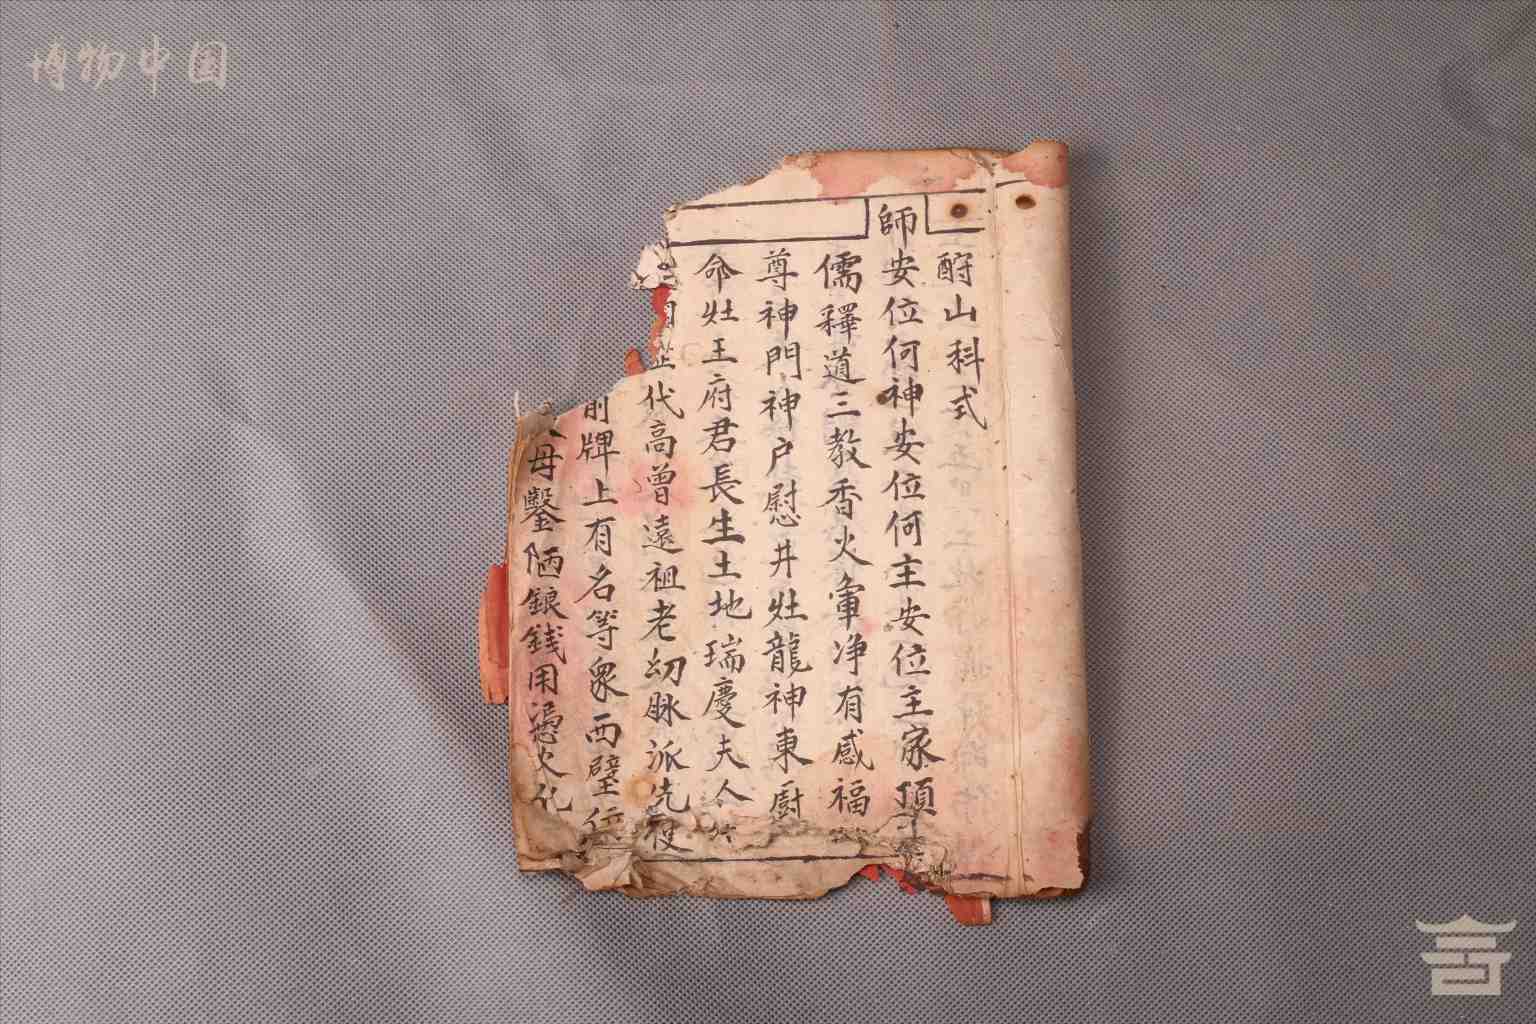 博物中国
酧山科式
師安位何神安位何主安位主家頂
儒釋道三教香火軍净有感福
尊神門神户慰井灶龍神東厨
命灶王府君長生土地瑞慶夫人
代高曾遠祖老幼脉派先
前牌上有名等衆西壁位
母鑿陋錄錢用憑火化